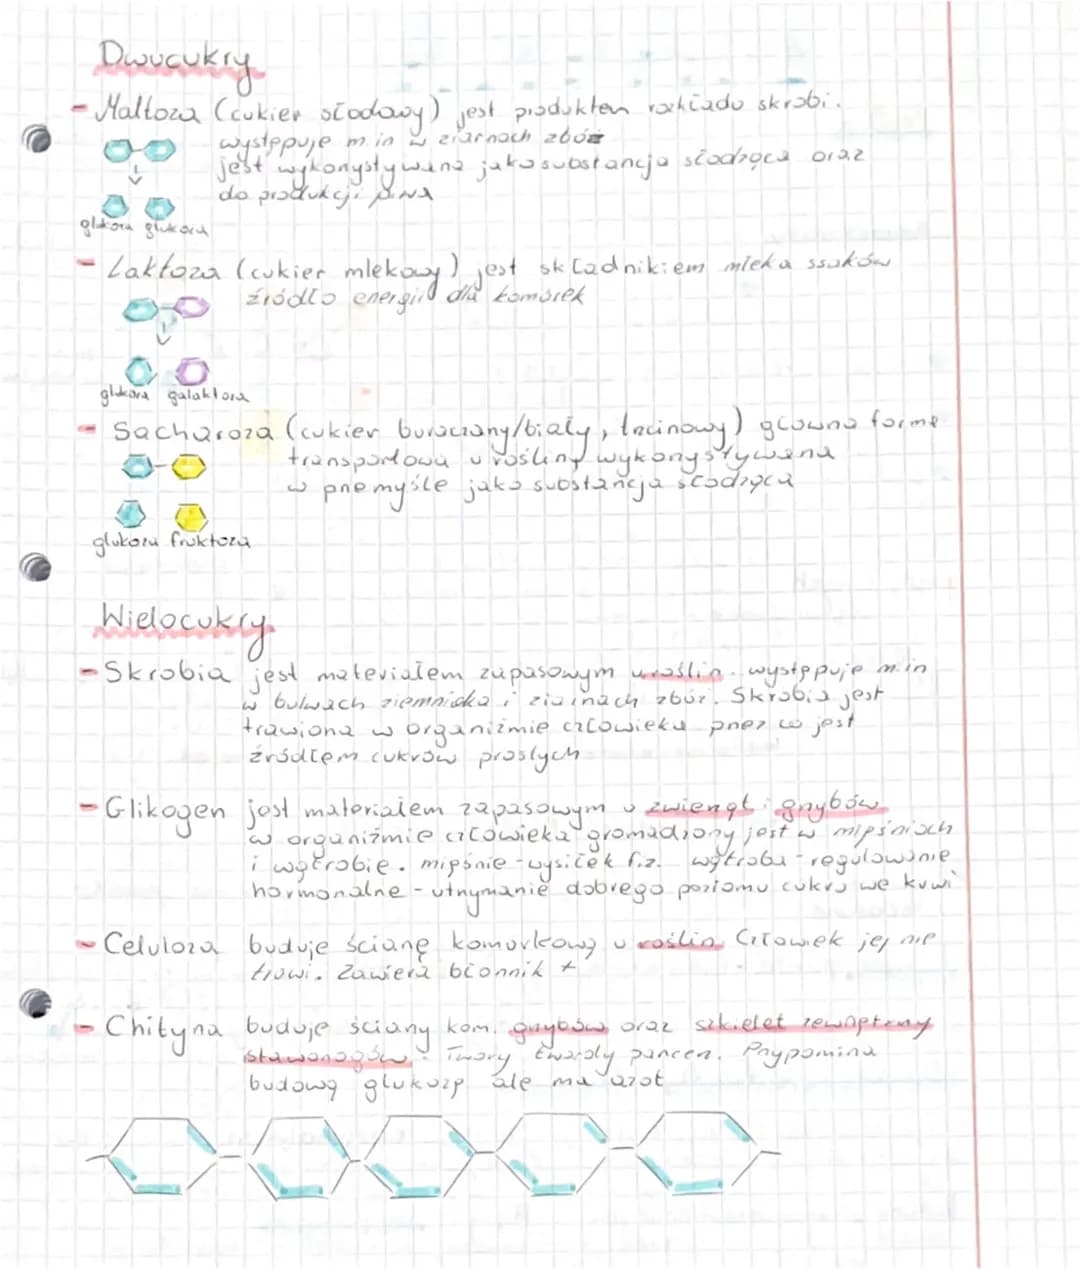 Dwucukry
- Maltoza (cukier słodowy) jest produktem rozkładu skrobi.
występuje m.in w ziarnach zbóż
jest wykorzystywana jako substancja słodząca oraz
do produkcji piwa
glukoza glukoza
- Laktoza (cukier mlekowy) jest składnikiem mleka ssaków
źródło energii dla komórek
glukoza galaktoza
- Sacharoza (cukier buraczany/biały, trzcinowy) główna forma
transportowa u rośliny wykorzystywana
w przemyśle jako substancja słodząca
glukoza fruktoza
Wielocukry
- Skrobia jest materiałem zapasowym u roślin. występuje m.in
w bulwach ziemniaka i ziarnach zbóż. Skrobia jest
trawiona w organiźmie człowieka przez co jest
źródłem cukrów prostych
- Glikogen jest materiałem zapasowym u zwierząt i grzybów
w organiźmie człowieka gromadzony jest w mięśniach
i wątrobie. mięśnie - wysiłek fiz. wątroba - regulowanie
hormonalne - utrzymanie dobrego poziomu cukru we krwi
- Celuloza buduje ścianę komórkową u roślin. Człowiek jej nie
trawi. Zawiera błonnik +
- Chityna buduje ściany kom. grzybów oraz szkielet zewnętrzny
stawonogów. Tworzy twardy pancerz. Przypomina
budową glukozę ale ma azot